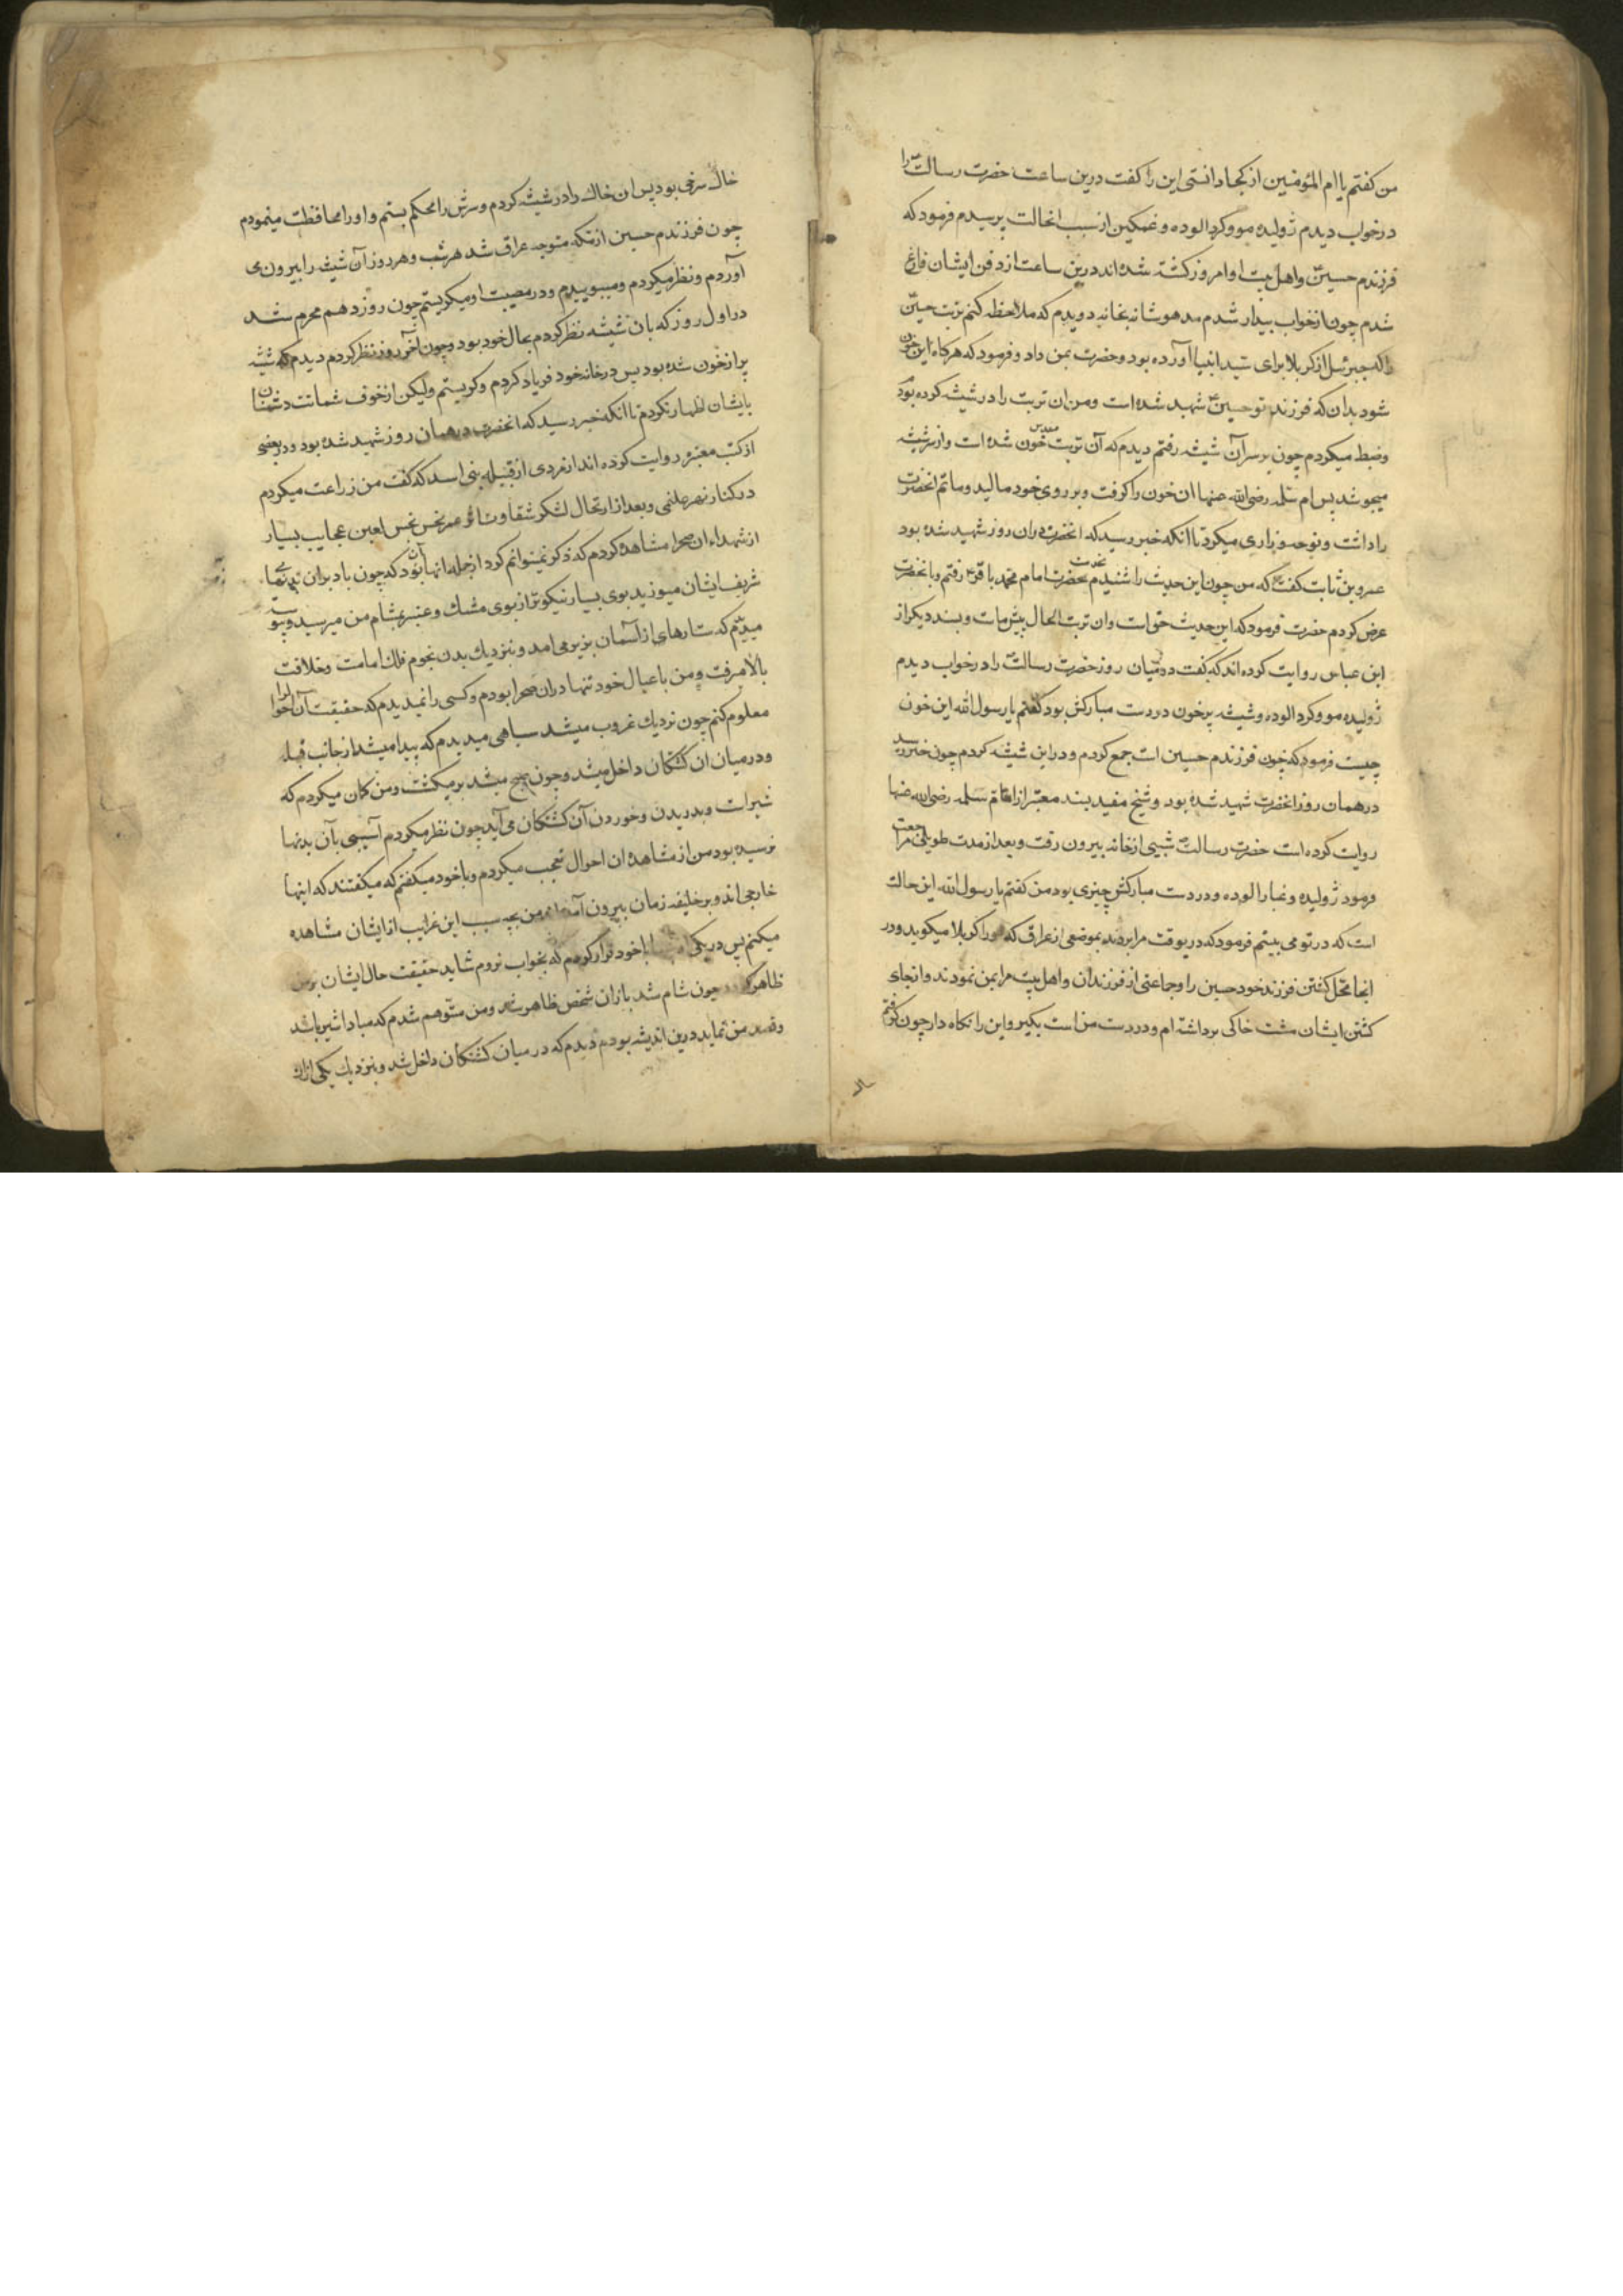 من کفتم یا ام المؤمنین از کجا دانستی این را کفت درین ساعت حضرت رسالت را
در خواب دیدم ژولیده مو و کرد الوده و غمکین از سبب انحالت پرسیدم فرمود که
فرزندم حسین و اهل بیت او امروز کشته شده اند درین ساعت از دفن ایشان فارغ
شدم چون از خواب بیدار شدم مدهوشانه بخانه دویدم که ملاحظه کنم تربت حسین
را که جبرئیل از کربلا برای سید انبیا آورده بود و حضرت بمن داد و فرمود که هرکاه این خون
شود بدان که فرزند تو حسین شهید شده است و من ان تربت را در شیشه کرده بودم
و ضبط میکردم چون بر سر آن شیشه رفتم دیدم که آن تربت مقدس خون شده است و از سر شیشه
میجوشد پس ام سلمه رضی الله عنها ان خون را کرفت و بر روی خود مالید و ماتم انحضرت
را داشت و نوحه و زاری میکرد تا انکه خبر رسید که انحضرت دران روز شهید شده بود
عمرو بن ثابت کفت که من چون این حدیث را شنیدم بخدمت حضرت امام محمد باقر رفتم و بانحضرت
عرض کردم حضرت فرمود که این حدیث حق است وان تربت الحال پیش ماست و بسند دیکر از
ابن عباس روایت کرده اند که کفت در میان روز حضرت رسالت را در خواب دیدم
ژولیده مو و کرد الوده و شیشه پرخون در دست مبارکش بود کفتم یا رسول الله این خون
چیست فرمود که خون فرزندم حسین است جمع کردم و در این شیشه کردم چون خبر رسید
در همان روز انحضرت شهید شده بود و شیخ مفید بسند معتبر از ام سلمه رضی الله عنها
روایت کرده است حضرت رسالت شبی از خانه بیرون رفت و بعد از مدت طویلی مراجعت
فرمود ژولیده و غبار الوده و در دست مبارکش چیزی بود من کفتم یا رسول الله این حالت
است که در تو می بینم فرمود که درین وقت مرا بردند بموضعی از عراق که اورا کربلا میکویند و در
انجا محل کشتن فرزند خود حسین را و جماعتی از فرزندان و اهل بیت مرا بمن نمودند و از جای
کشتن ایشان مشت خاکی برداشته ام و در دست من است بکیر و این را نکاه دار چون کرفتم
خاک سرخی بود پس ان خاک را در شیشه کردم و سرش را محکم بستم و او را محافظت مینمودم
چون فرزندم حسین از مکه متوجه عراق شد هر شب و هر روز آن شیشه را بیرون می
آوردم و نظر میکردم و میبوییدم و در مصیبت او میکریستم چون روز دهم محرم شد
در اول روز که بان شیشه نظر کردم بحال خود بود و چون آخر روز نظر کردم دیدم که شیشه
پر از خون شده بود پس در خانه خود فریاد کردم و کریستم ولیکن از خوف شماتت دشمنان
بایشان اظهار نکردم تا انکه خبر رسید که انحضرت در همان روز شهید شده بود و در بعضی
از کتب معتبره روایت کرده اند از مردی از قبیله بنی اسد که کفت من زراعت میکردم
در کنار نهر علقمی و بعد از ارتحال لشکر شقاوت اثر عمر نحس نجس لعین عجایب بسیار
از شهداء ان صحرا مشاهده کردم که ذکر نمیتوانم کرد از جمله انها آن بود که چون باد بران تنهای
شریف ایشان میوزید بوی بسیار نیکوتر از بوی مشک و عنبر بمشام من میرسید و پیوسته
میدیدم که ستارهای از آسمان بزیر می امد و بنزدیک بدن نجوم فلک امامت و خلافت
بالا میرفت و من با عیال خود تنها دران صحرا بودم و کسی را نمیدیدم که حقیقت آن احوال
معلوم کنم چون نزدیک غروب میشد سیاهی میدیدم که پیدا میشد از جانب قبله
و در میان ان کشتکان داخل میشد و چون صبح میشد بر میکشت و من کمان میکردم که
شیر است و بدریدن و خوردن آن کشتکان می آید چون نظر میکردم آسیبی بآن بدنها
نرسیده بود من از مشاهده ان احوال تعجب میکردم و با خود میکفتم که میکفتند که اینها
خارجی اند و بر خلیفه زمان بیرون آمده اند من بچه سبب این غرایب از ایشان مشاهده
میکنم پس در یکی از شبها با خود قرار کردم که بخواب نروم شاید حقیقت حال ایشان بر من
ظاهر کردد چون شام شد باز ان شخص ظاهر شد و من متوهم شدم که مبادا شیر باشد
و قصد من نماید درین اندیشه بودم دیدم که در میان کشتکان داخل شد و بنزدیک یکی از ان